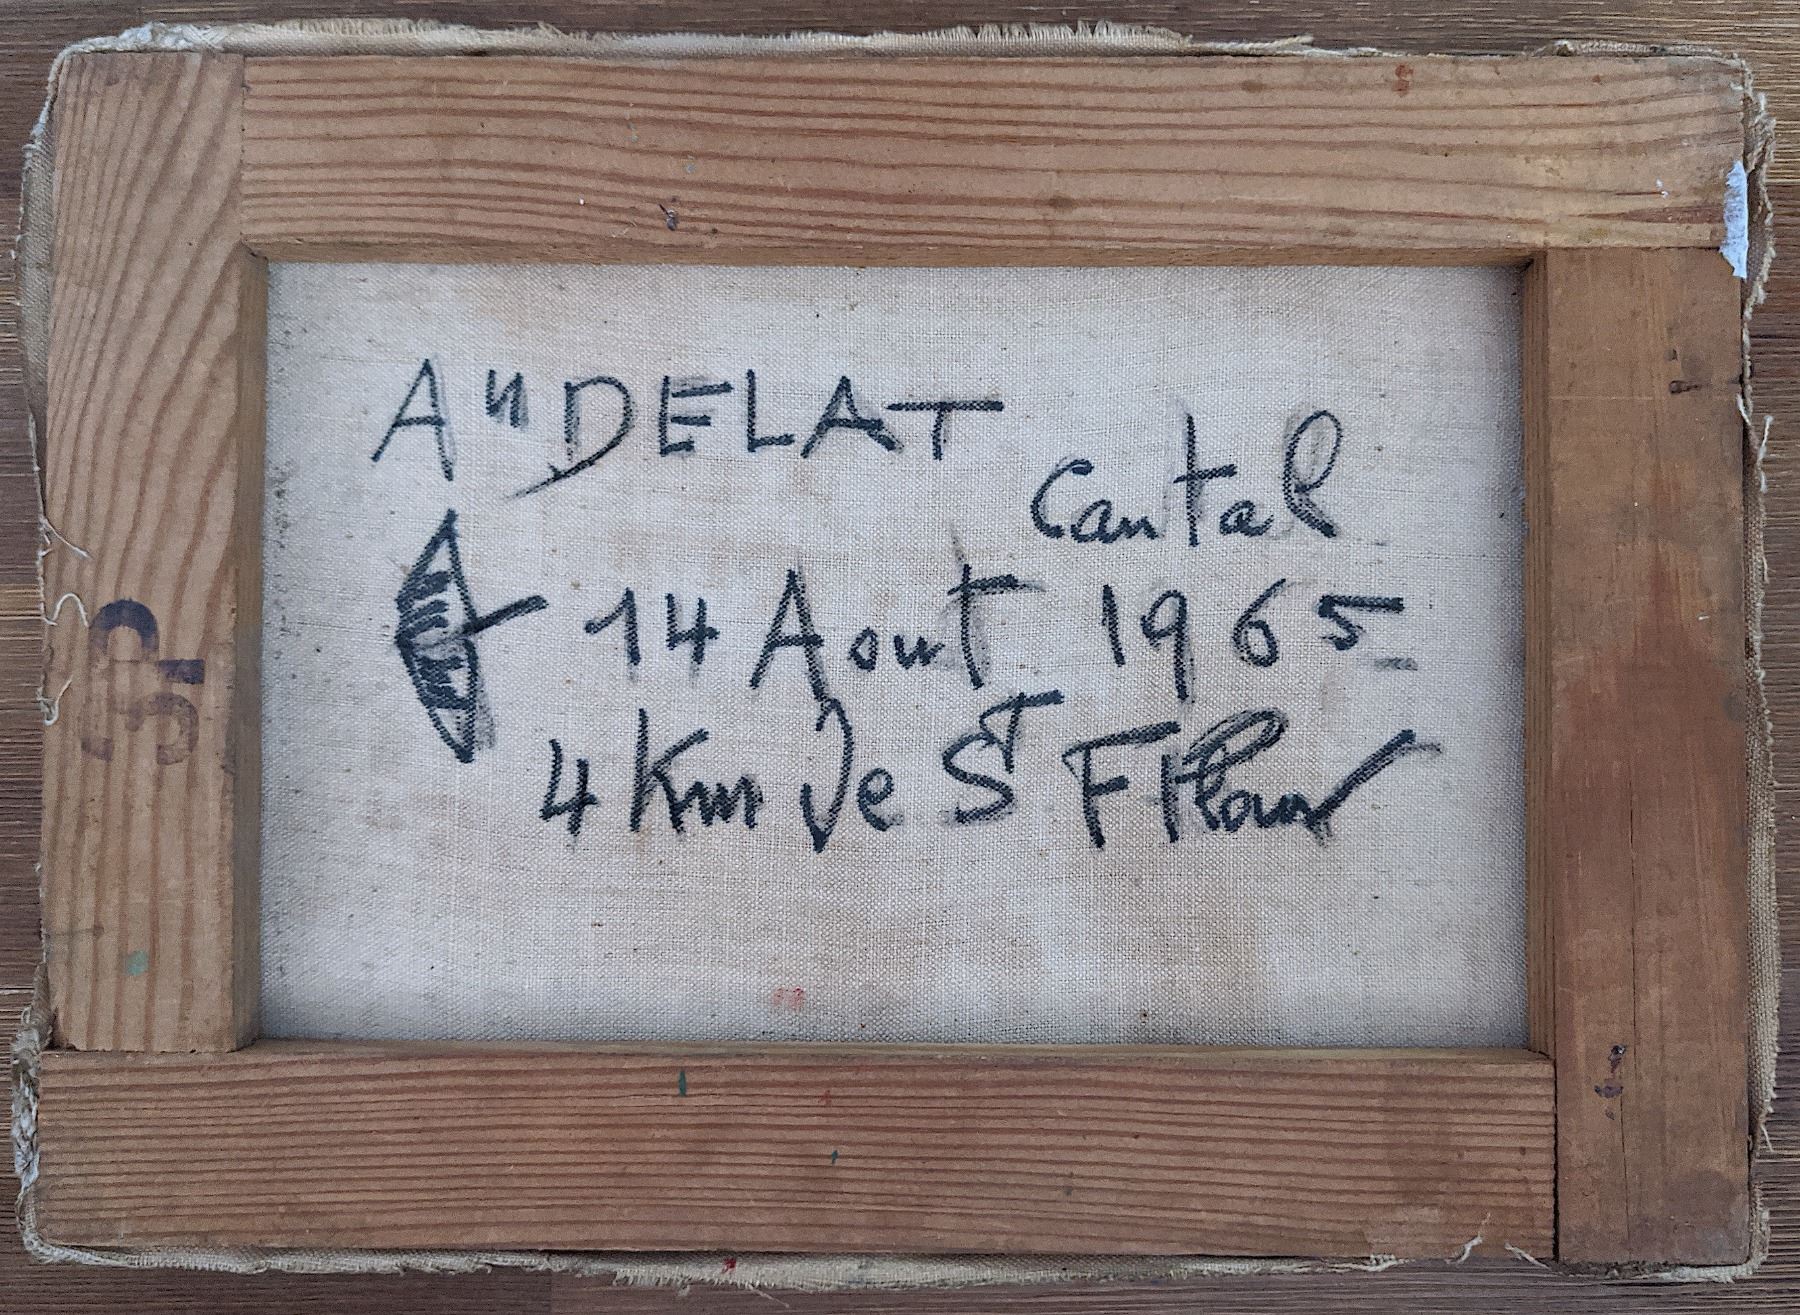 AuDELAT
Cantal
14 Aout 1965
4 Km de St Flour